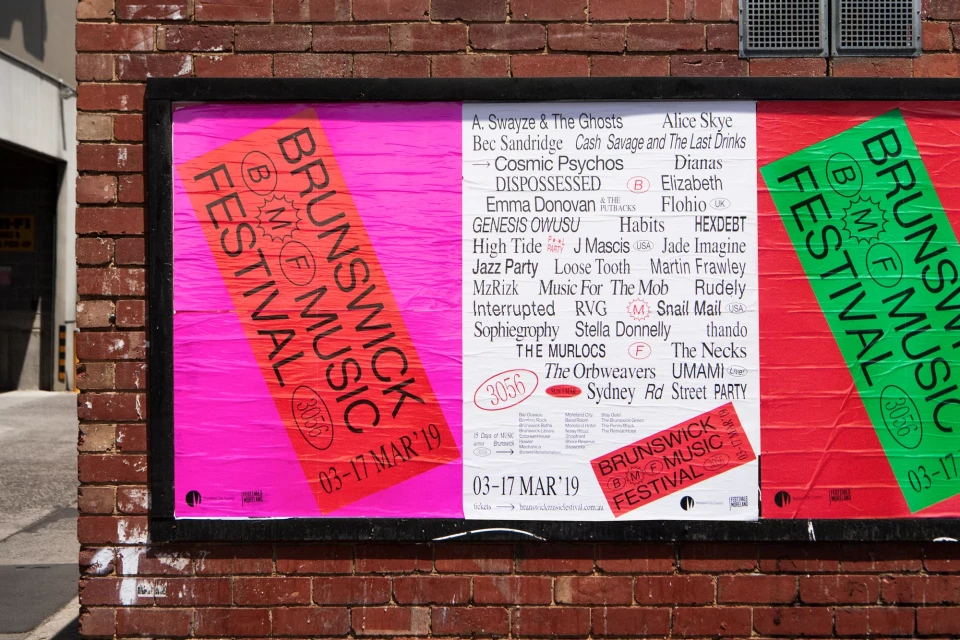 BRUNSWICK
B M F MUSIC
FESTIVAL 3056
03–17 MAR'19
A. Swayze & The Ghosts Alice Skye
Bec Sandridge Cash Savage and The Last Drinks
→ Cosmic Psychos Dianas
DISPOSSESSED B Elizabeth
Emma Donovan & THE PUTBACKS Flohio UK
GENESIS OWUSU Habits HEXDEBT
High Tide J Mascis USA Jade Imagine
Jazz Party Loose Tooth Martin Frawley
MzRizk Music For The Mob Rudely
Interrupted RVG M Snail Mail USA
Sophiegrophy Stella Donnelly thando
THE MURLOCS F The Necks
The Orbweavers UMAMI Live!
3056 Sydney Rd Street PARTY
15 Days of MUSIC
03–17 MAR'19
tickets → brunswickmusicfestival.com.au
BRUNSWICK
B M F MUSIC
FESTIVAL
BRUNSWICK
B M F MUSIC
FESTIVAL 3056
03–17